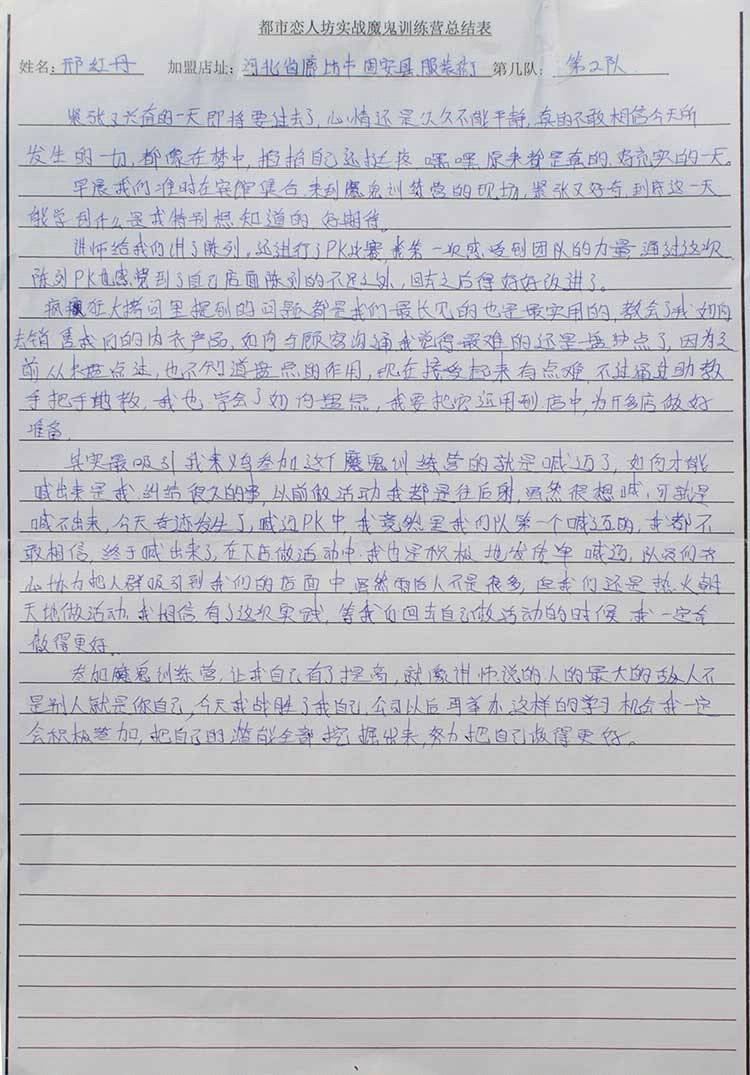 都市恋人坊实战魔鬼训练营总结表
姓名：邢红丹 加盟店址：河北省廊坊市固安县服装街 第几队：第2队
紧张又兴奋的一天即将要过去了,心情还是久久不能平静,真的不敢相信今天所
发生的一切,都像在梦中,掐掐自己还挺疼,嘿嘿原来都是真的,好充实的一天。
早晨我们准时在宾馆集合,来到魔鬼训练营的现场,紧张又好奇,到底这一天
能学到什么是我特别想知道的,好期待。
讲师给我们讲了陈列,还进行了PK比赛,我第一次感受到团队的力量通过这次
陈列PK也感觉到了自己店面陈列的不足之处,回去之后得好好改进了。
疯狂大拷问里提到的问题都是我们最长见的也是最实用的,教会了我如何
去销售我们的内衣产品,如何与顾客沟通我觉得最难的还是盘点了,因为之
前从未盘点过,也不知道盘点的作用,现在接受起来有点难,不过通过助教
手把手地教,我也学会了如何盘点,我要把它运用到店中,为开多店做好
准备。
其实最吸引我来义乌参加这个魔鬼训练营的就是喊迈了,如何才能
喊出来是我纠结很久的事,以前做活动我都是往后躲,虽然很想喊,可就是
喊不出来,今天奇迹发生了,喊迈PK中,我竟然是我们队第一个喊迈的,我都不
敢相信,终于喊出来了,在下店做活动中,我也是积极地发传单,喊迈,队员们齐
心协力把人群吸引到我们的店面中虽然雨后人不是很多,但我们还是热火朝
天地做活动,我相信有了这次实践,等我们回去自己做活动的时候,我一定会
做得更好。
参加魔鬼训练营,让我自己有了提高,就像讲师说的人的最大的敌人不
是别人就是你自己,今天我战胜了我自己,公司以后再举办这样的学习机会我一定
会积极参加,把自己的潜能全部挖掘出来,努力把自己做得更好。